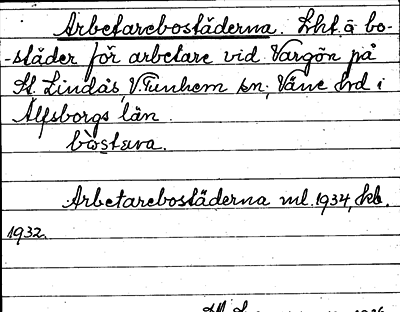 Arbetarebostäderna. Lht. å bo-
-städer för arbetare vid Vargön på
St. Lindås, V. Tunhem sn; Väne hd i
Älfsborgs län.
bòstęva.
Arbetarebostäderna ml. 1934, kb.
1932.